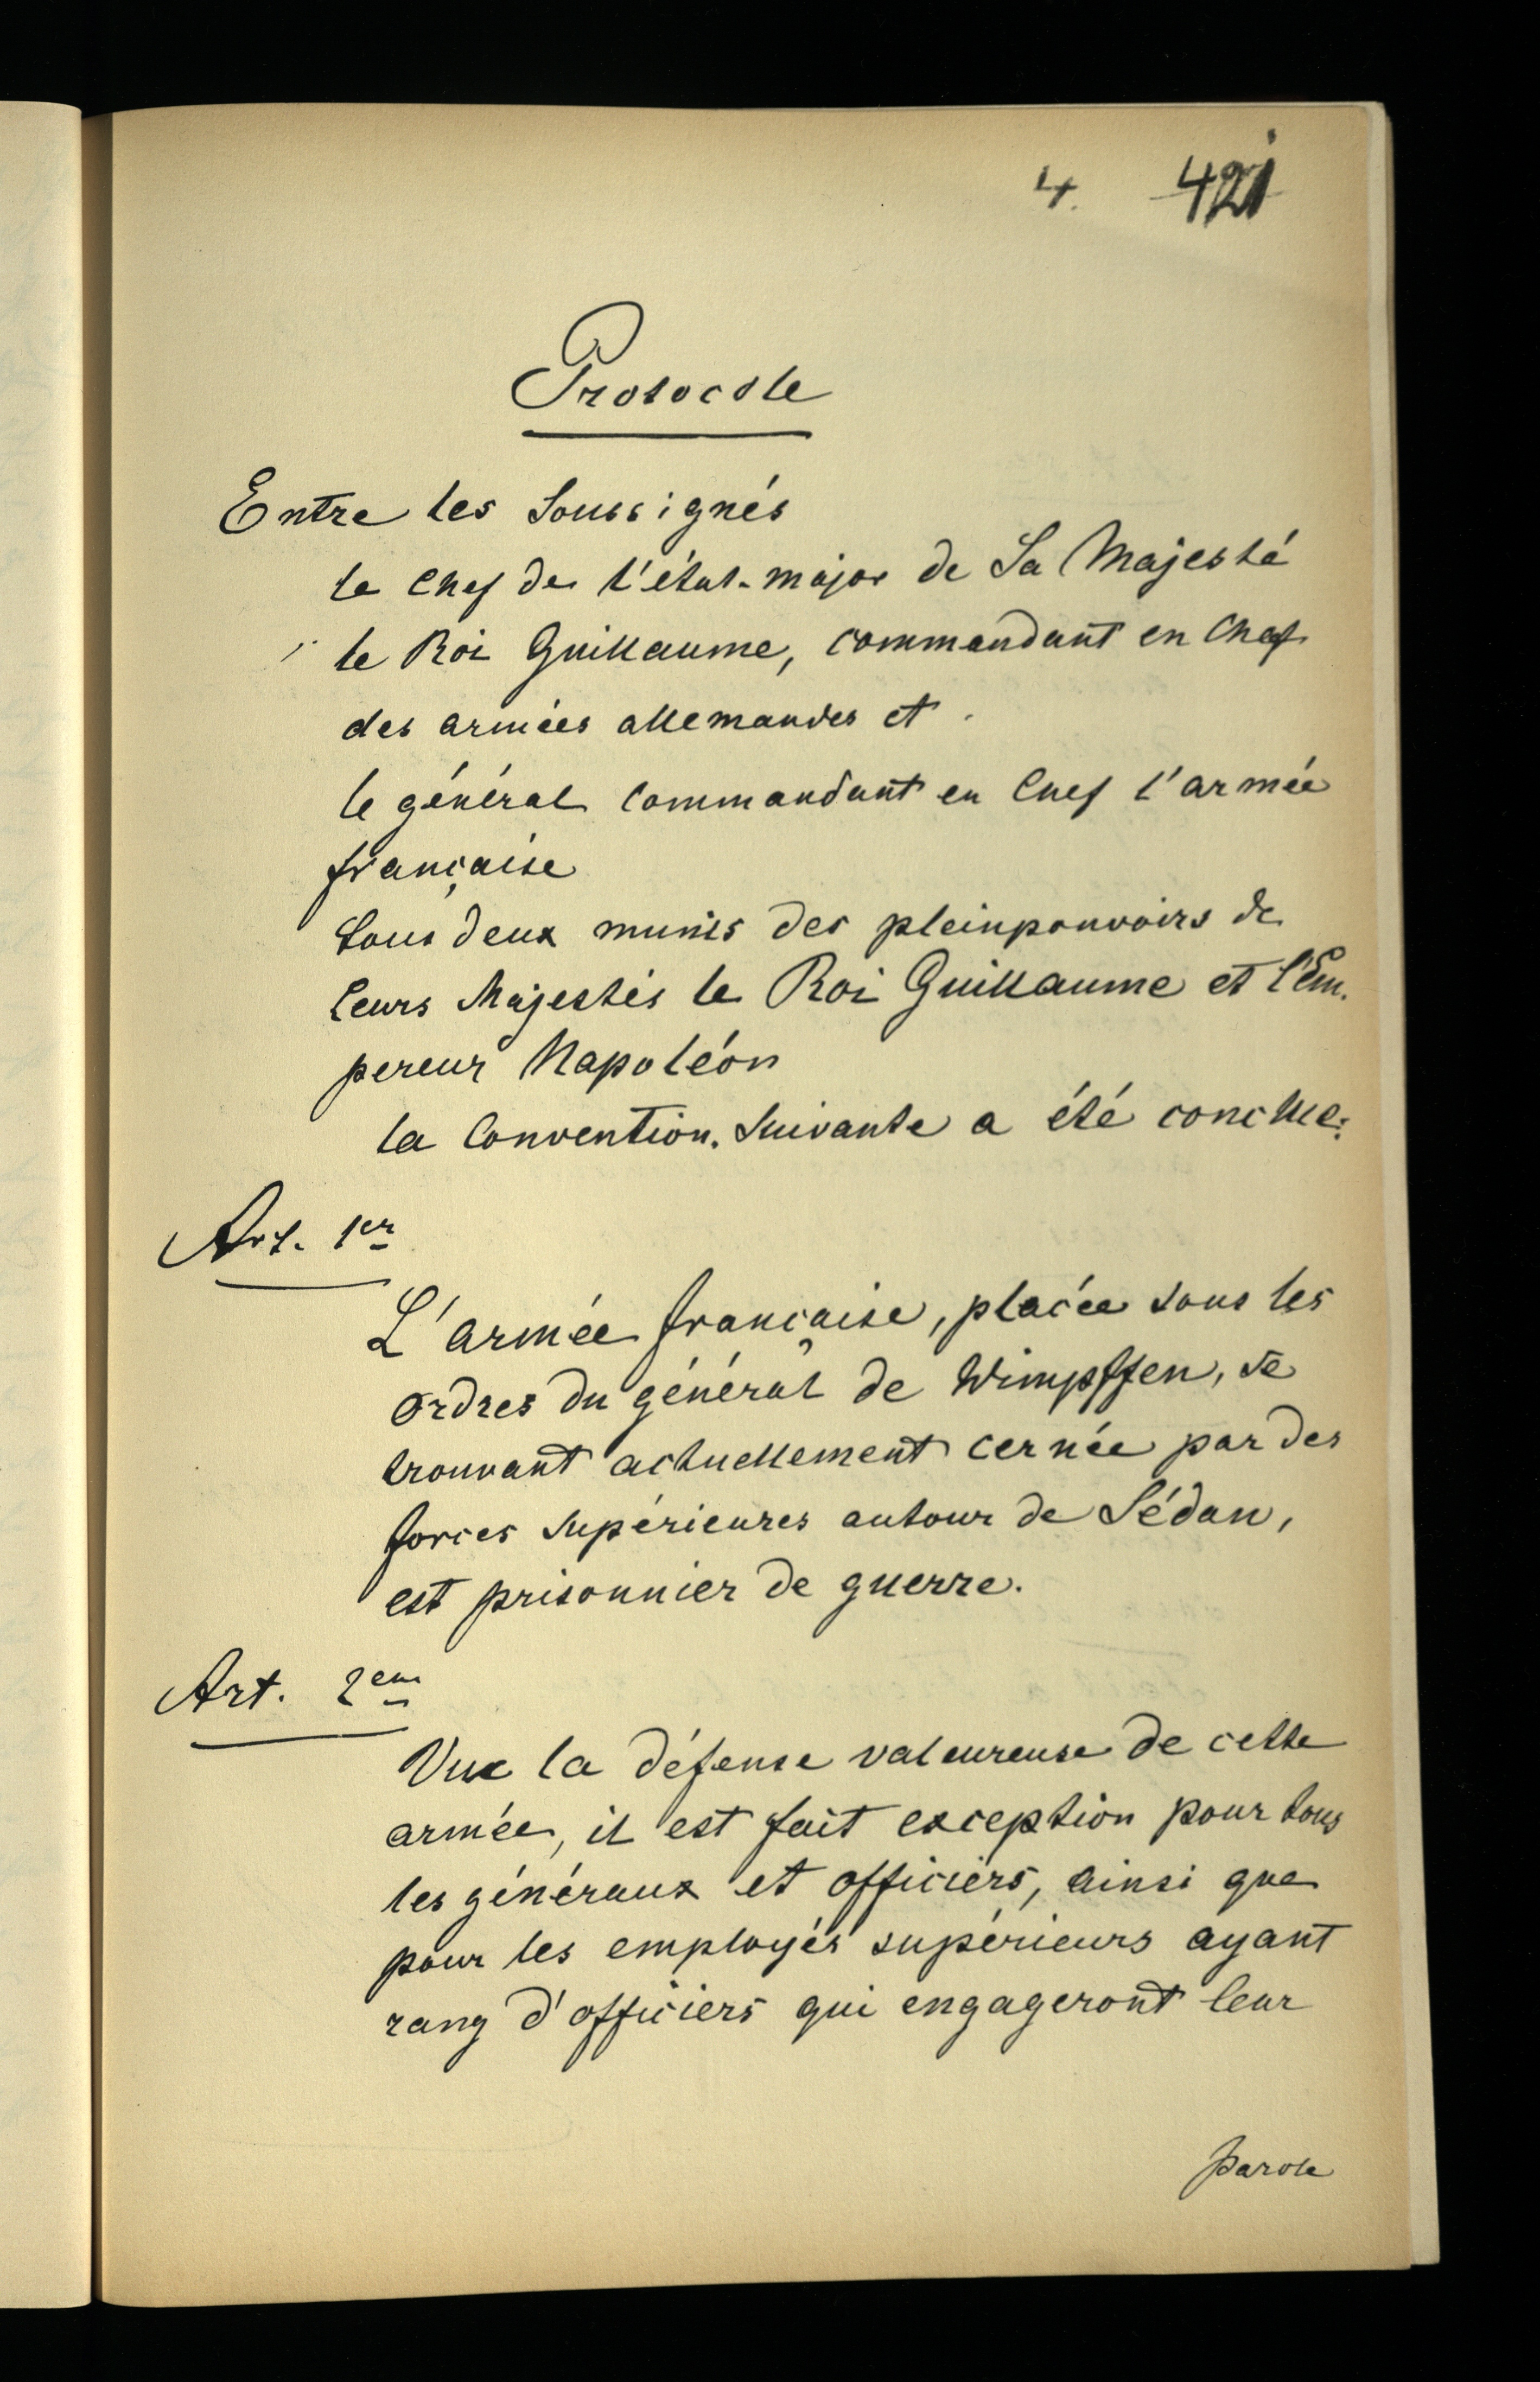 4. 421
Protocole
Entre les Soussignés
le Chef de l'état-major de Sa Majesté
le Roi Guillaume, commandant en Chef
des armées allemandes et
le général Commandant en Chef l'armée
française
tous deux munis des pleinpouvoirs de
Leurs Majestés le Roi Guillaume et l'Em-
pereur Napoléon
la Convention suivante a été conclue:
Art. 1er
L'armée française, placée sous les
ordres du général de Wimpffen, se
trouvant actuellement cernée par des
forces supérieures autour de Sédan,
est prisonnier de guerre.
Art. 2em
Vue la défense valeureuse de cette
armée, il est fait exception pour tous
les généraux et officiers, ainsi que
pour les employés supérieurs ayant
rang d'officiers qui engageront leur
parole